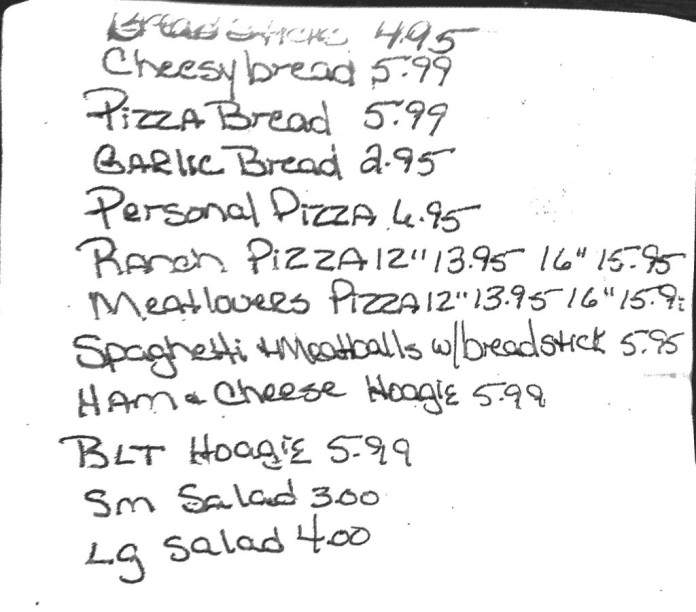 Breadsticks 4.95
Cheesybread 5.99
PizzA Bread 5.99
GARlic Bread 2.95
Personal PizzA 6.95
RAnch PizzA 12" 13.95 16" 15.95
Meatlovers PizzA 12" 13.95 16" 15.9
Spaghetti & Meatballs w/breadstick 5.95
HAm & Cheese Hoagie 5.99
BLT Hoagie 5.99
Sm Salad 3.00
Lg Salad 4.00